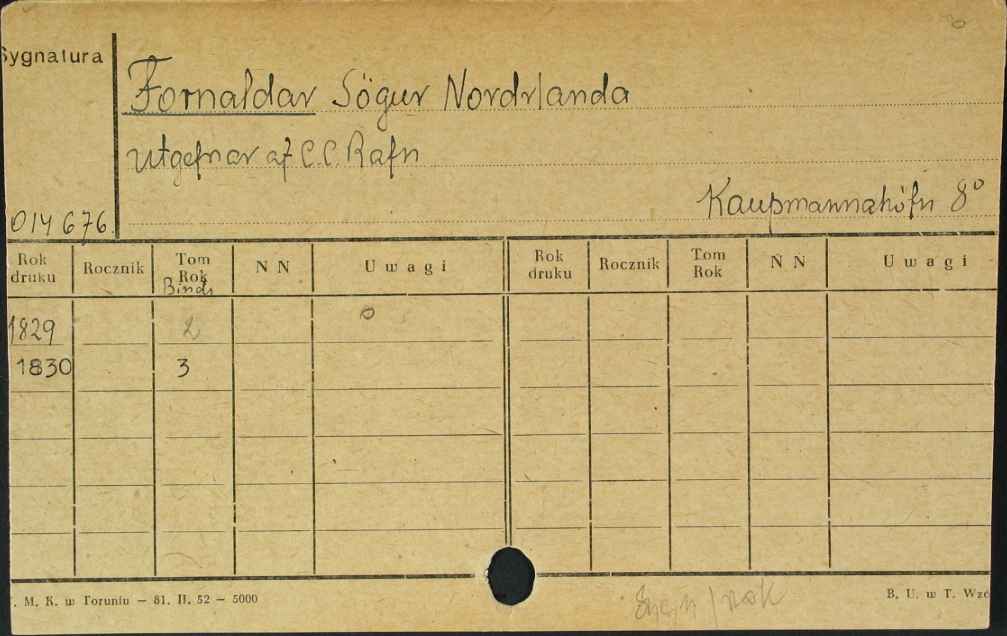 Sygnatura
Fornaldar Sögur Nordrlanda
utgefnar af C.C. Rafn
Kaupmannahöfn 8°
014676.
Rok druku Rocznik Tom Rok Bindi N N Uwagi Rok druku Rocznik Tom Rok N N Uwagi
1829 2
1830 3
. M. K. w Toruniu — 81. II. 52 — 5000
B. U. w T. Wzó